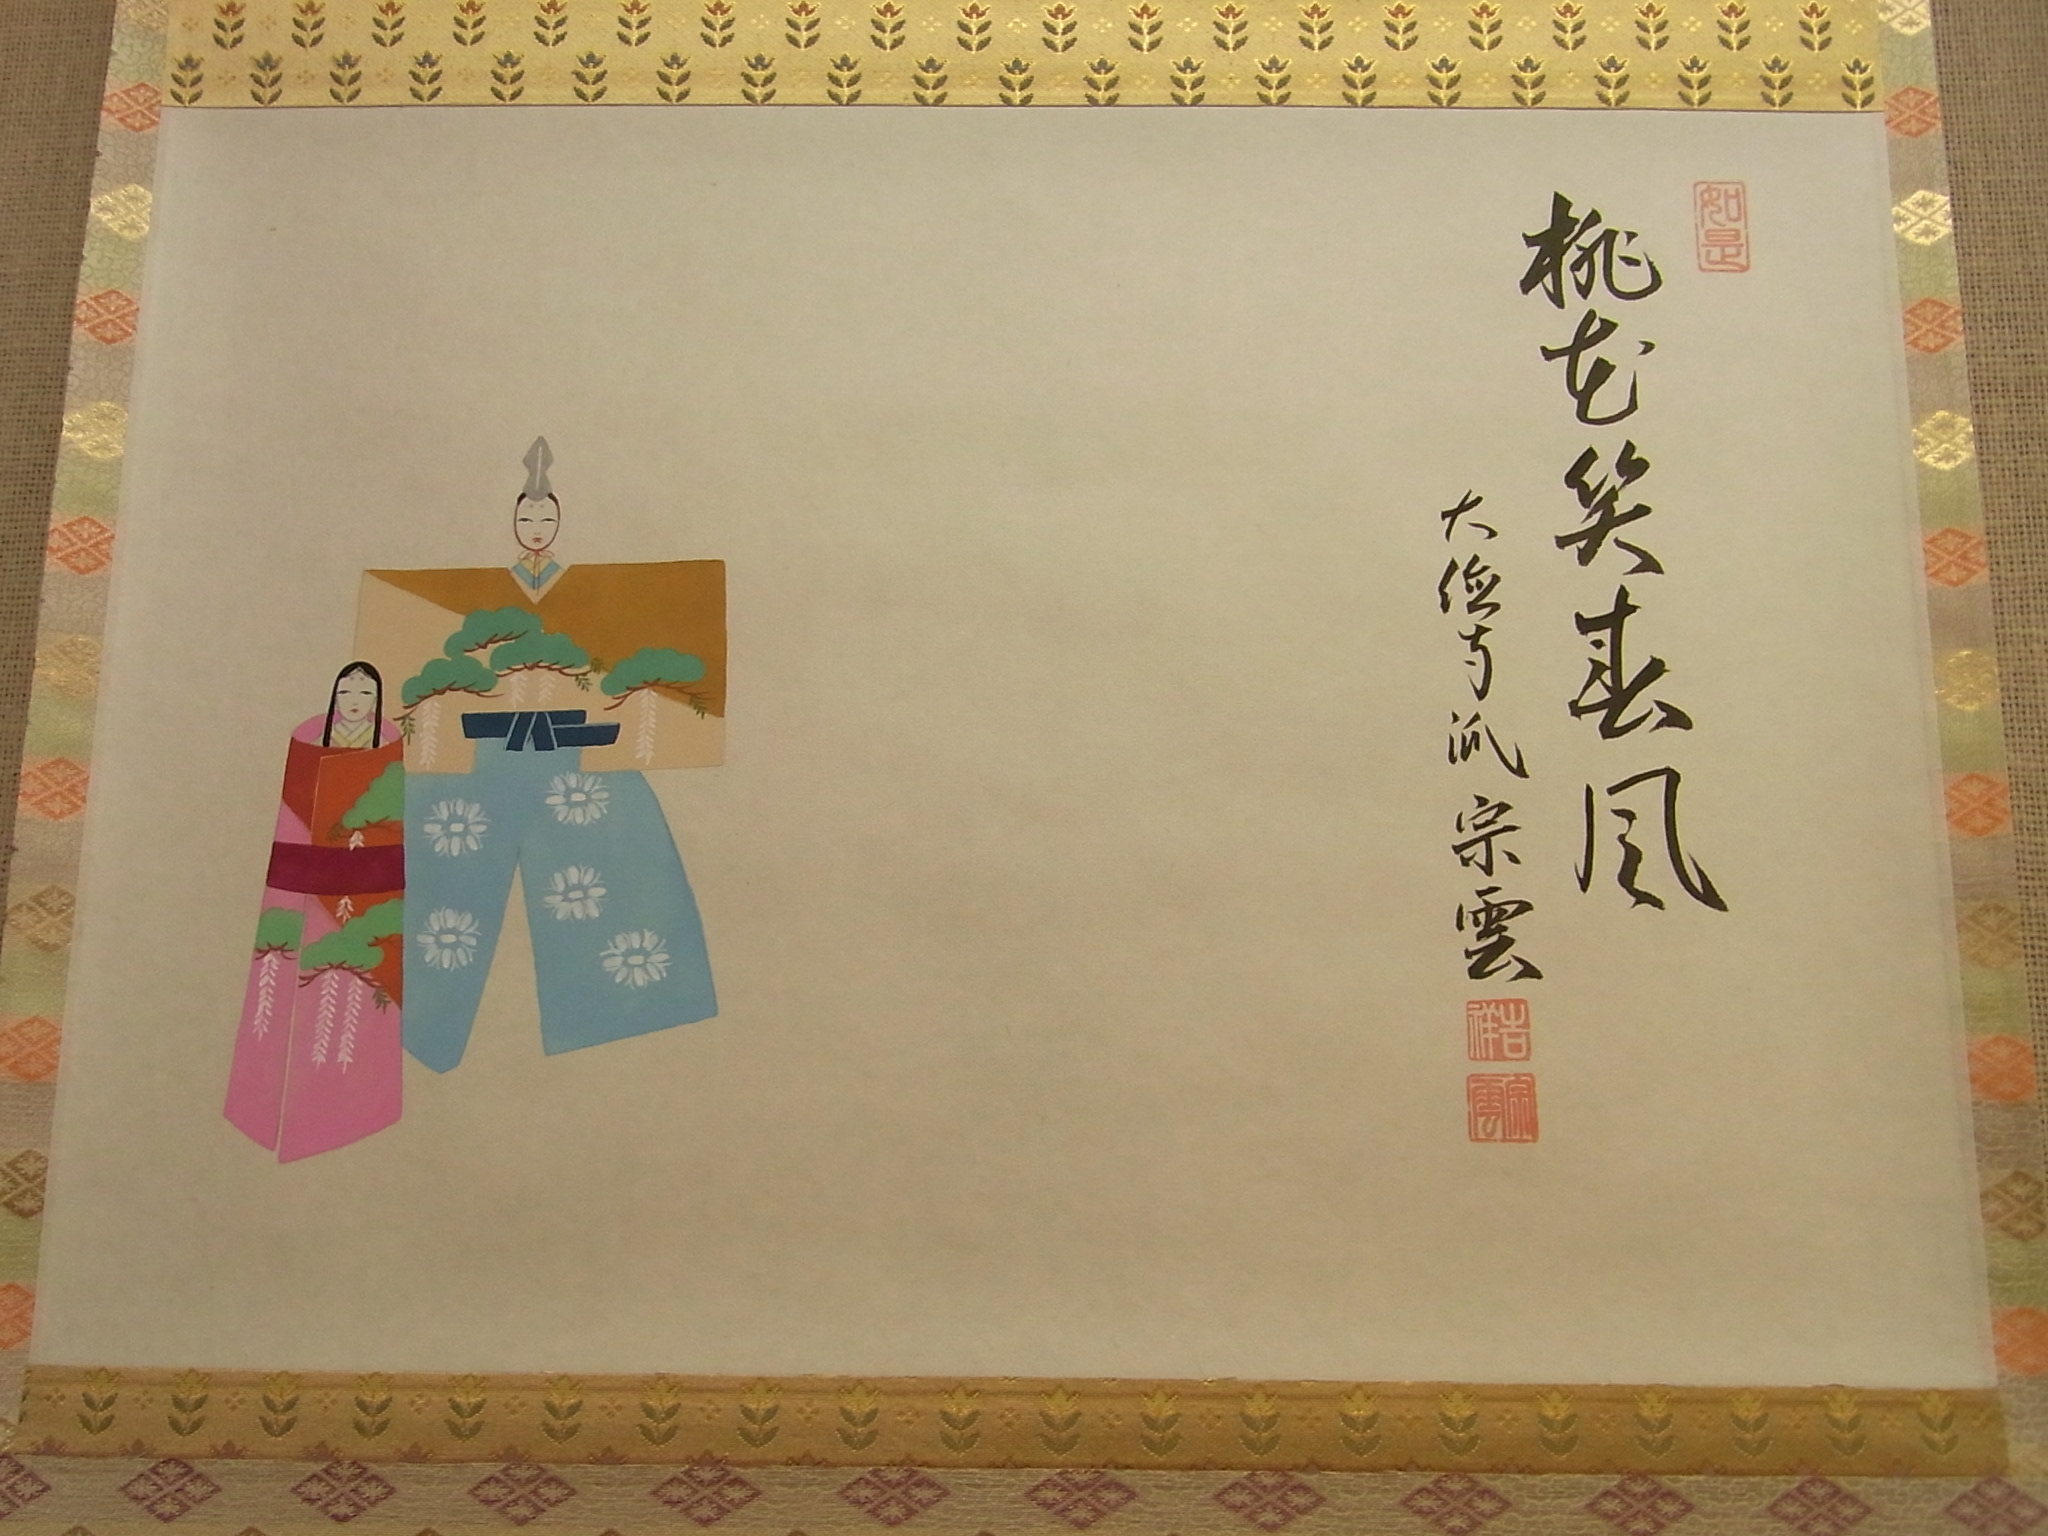 如是
桃花笑春風
大徳寺派 宗雲
吉祥
宗雲